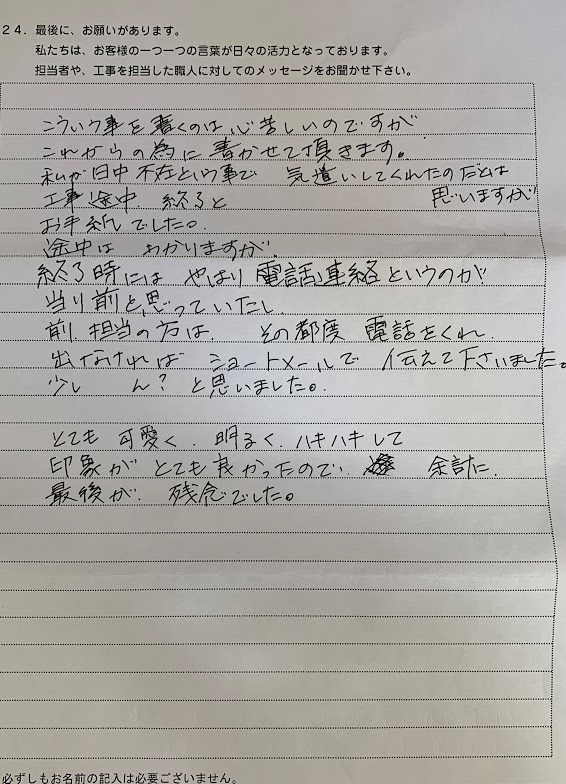 24. 最後に、お願いがあります。
私たちは、お客様の一つ一つの言葉が日々の活力となっております。
担当者や、工事を担当した職人に対してのメッセージをお聞かせ下さい。
こういう事を書くのは心苦しいのですが
これからの為に書かせて頂きます。
私が日中不在という事で 気遣いしてくれたのだとは
思いますが
工事途中 終了と
お手紙でした。
途中は わかりますが
終了時には やはり電話連絡というのが
当り前と思っていたし
前. 担当の方は. その都度 電話をくれ
出なければ ショートメールで 伝えて下さいました。
少し ん? と思いました。
とても 可愛く. 明るく. ハキハキして
印象が とても良かったので. 余計に.
最後が. 残念でした。
必ずしもお名前の記入は必要ございません。